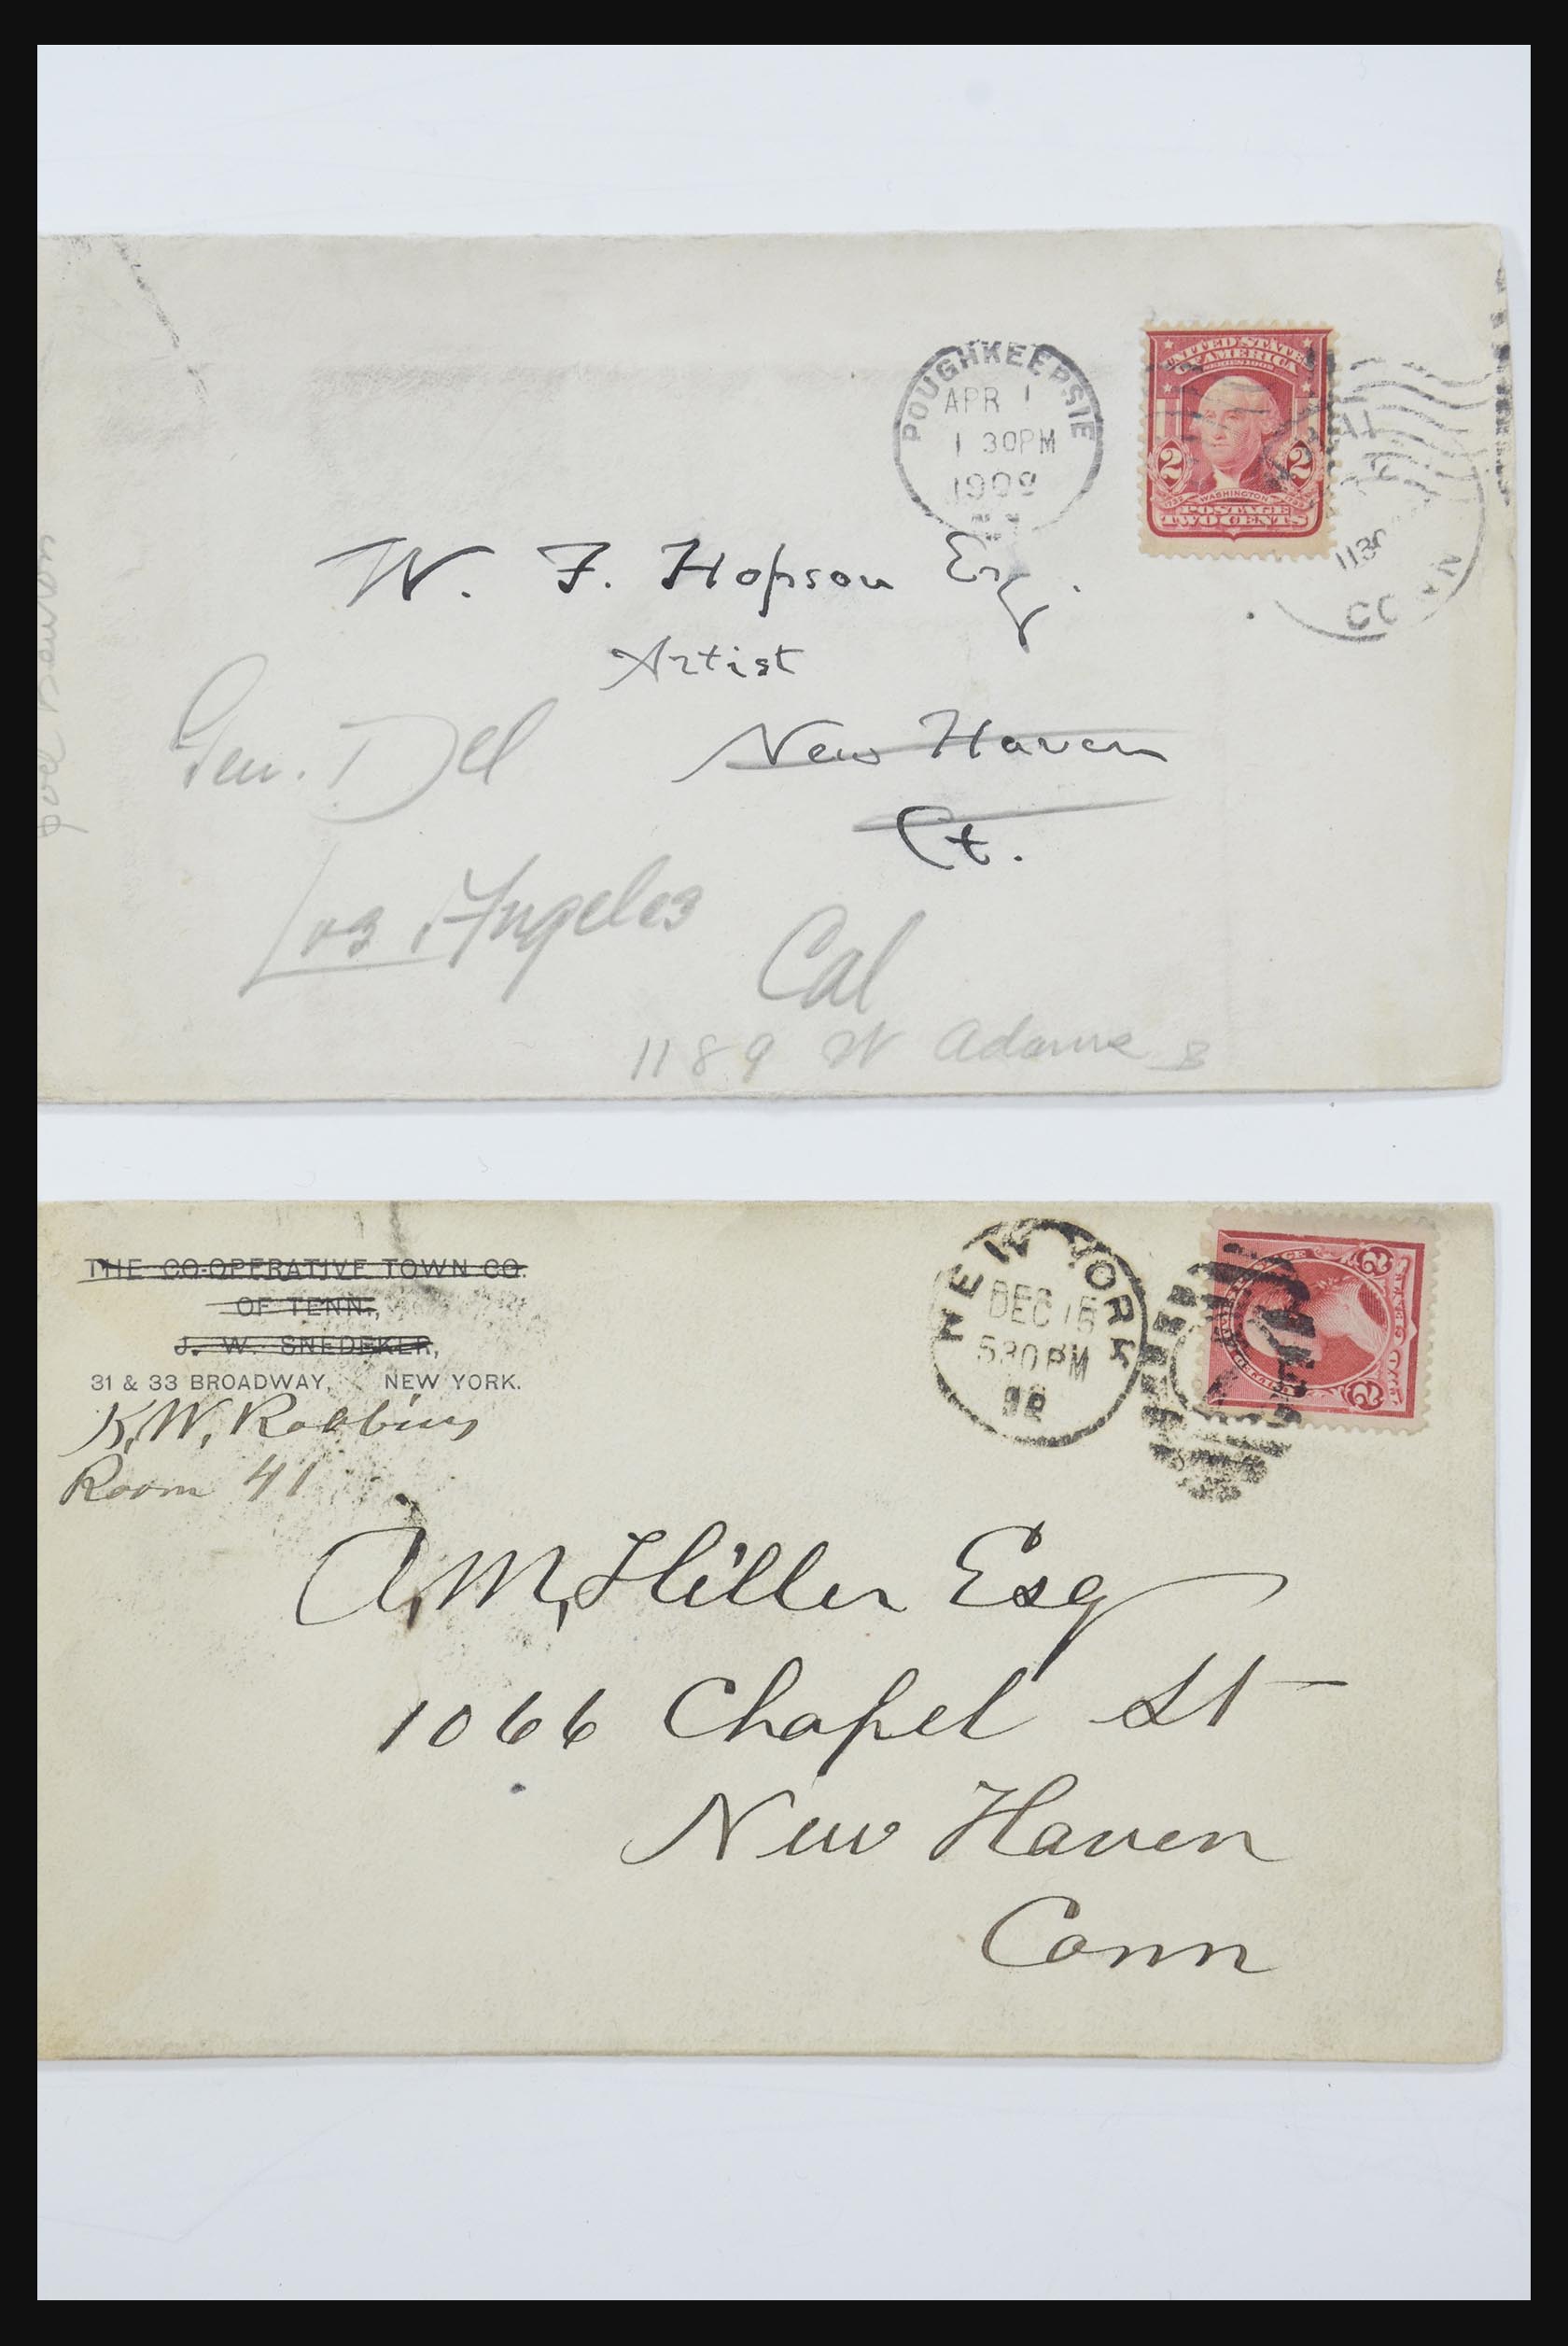 POUGHKEEPSIE
APR 1
1 30PM
1909
UNITED STATES
OF AMERICA
SERIES 1902
2 2
1732 WASHINGTON 1799
POSTAGE
TWO CENTS
1130
W. F. Hopson Esq.
Artist
New Haven
Ct.
Gen. Del
Los Angeles
Cal
1189 W Adams
THE CO-OPERATIVE TOWN CO.
OF TENN.,
J. W. SNEDEKER,
31 & 33 BROADWAY, NEW YORK.
K. W. Robbins
Room 41
NEW YORK
DEC 15
530PM
2 2
TWO CENTS
A. M. Hiller Esq
1066 Chapel St
New Haven
Conn